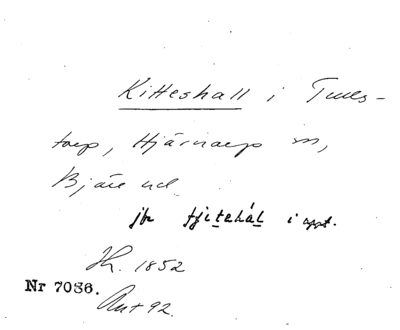 Kitteshall i Tures-
torp, Hjärnarp sn,
Bjäre hd.
jfr tjitehál i uppt.
Jh. 1852
Nr 7086.
Ant 92.